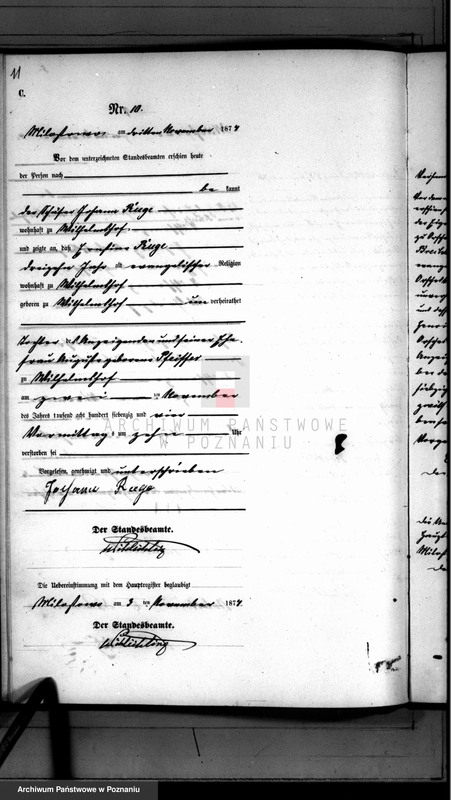 11
C.
Nr. 10.
Miloslawo, am dritten November 1874
Vor dem unterzeichneten Standesbeamten erschien heute
der Person nach
be kannt
der Schäfer Johann Ruge
wohnhaft zu Wilhelmshof
und zeigte an, daß Ernstine Ruge
dreizehn Jahr alt evangelischer Religion
wohnhaft zu Wilhelmshof
geboren zu Wilhelmshof un verheirathet
Tochter des Anzeigenden und seiner Ehe-
frau Auguste geborene Pfeiffer
zu Wilhelmshof
am zwei ten November
des Jahres tausend acht hundert siebenzig und vier
Vormittag um zehn Uhr
verstorben sei
Vorgelesen, genehmigt und unterschrieben
Johann Ruge
Der Standesbeamte.
Die Uebereinstimmung mit dem Hauptregister beglaubigt
am 3 ten November 1874
Der Standesbeamte.
ARCHIWUM PAŃSTWOWE
W POZNANIU
Archiwum Państwowe w Poznaniu